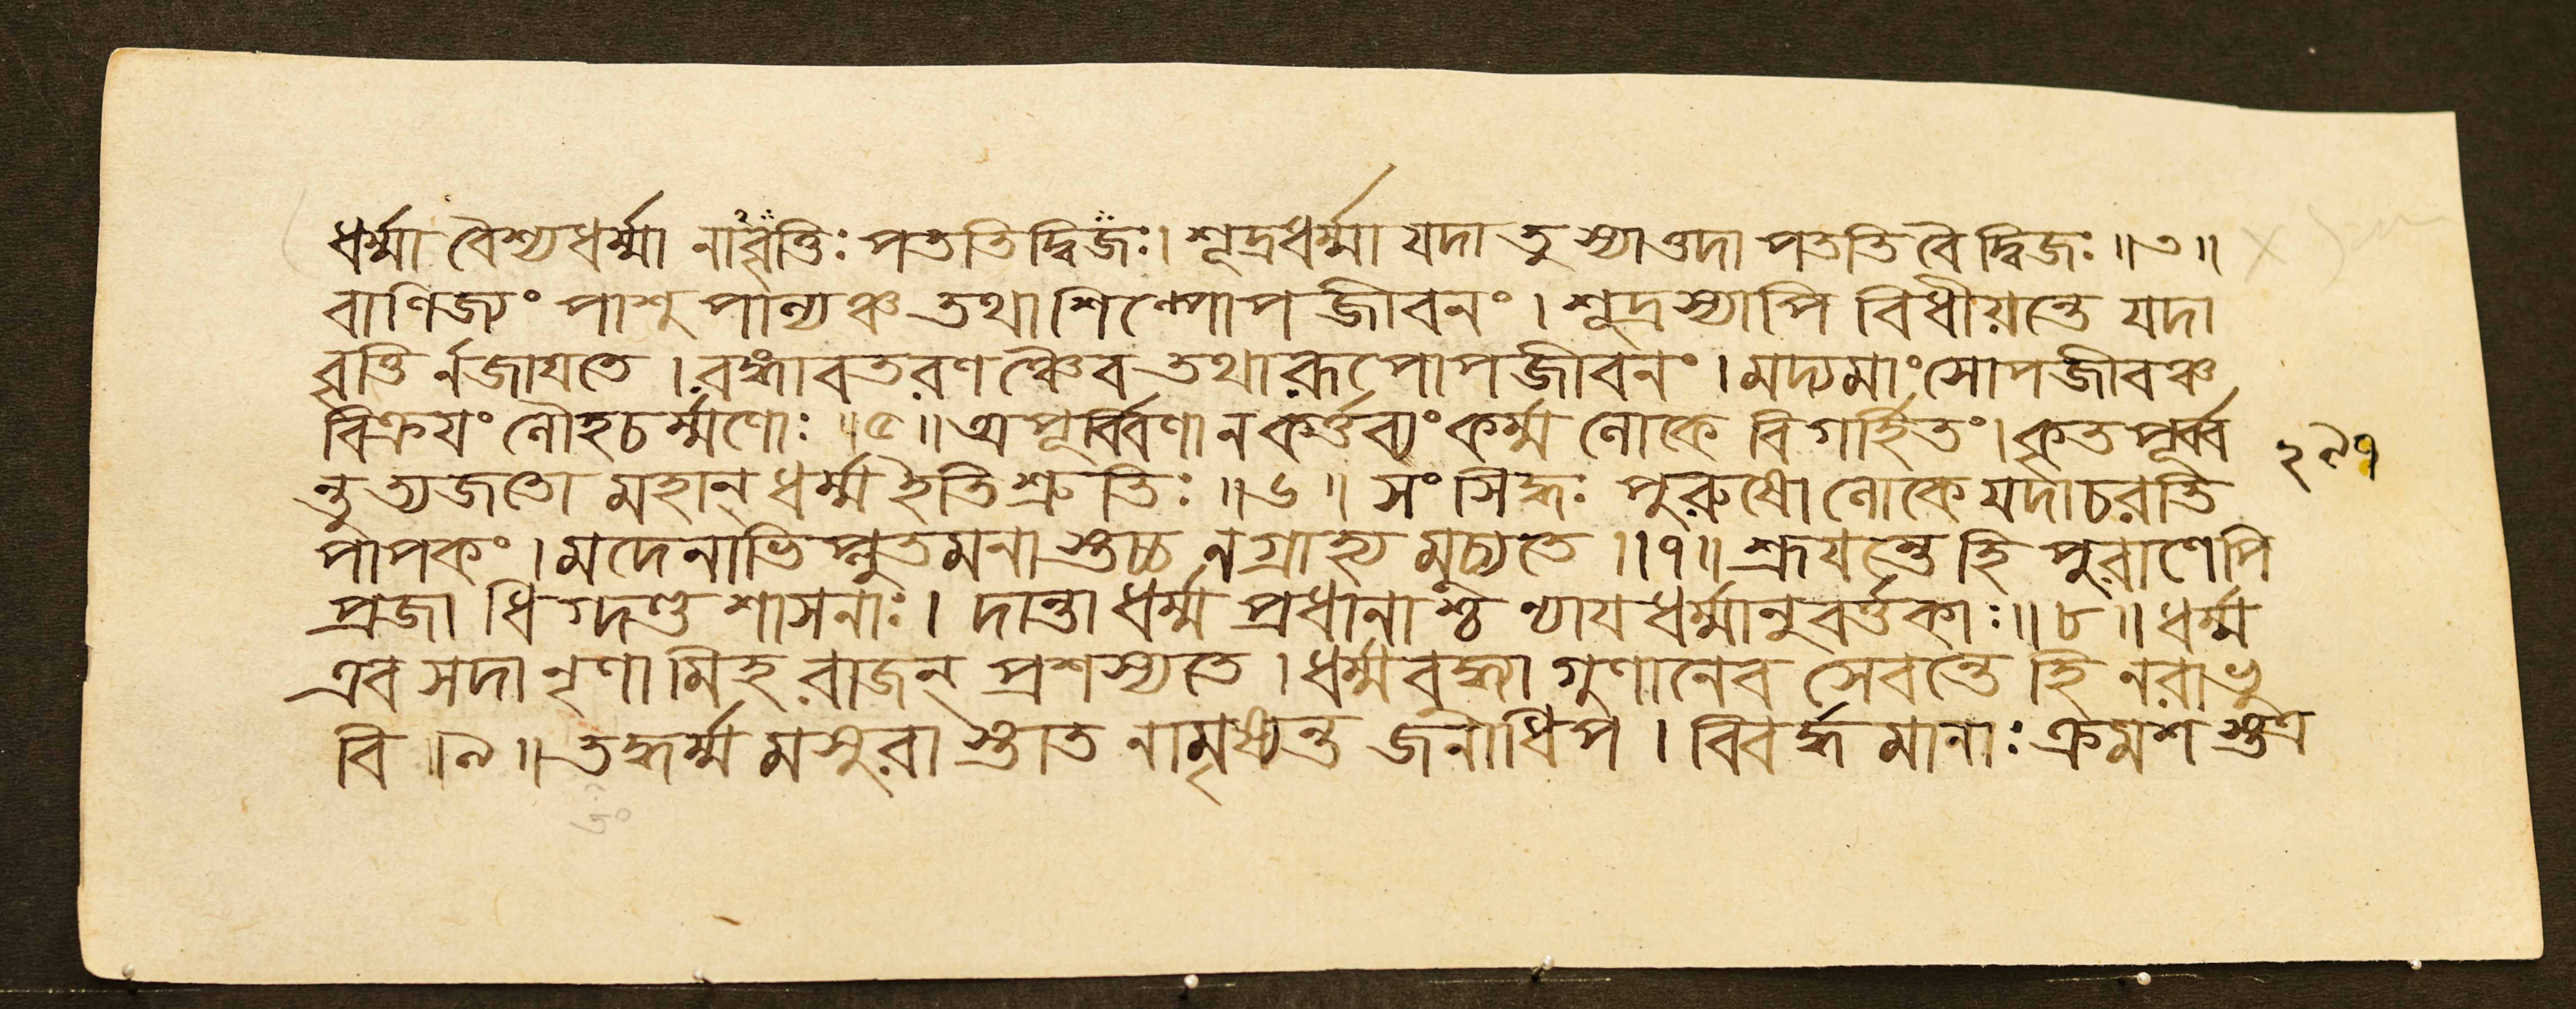 ধর্ম্মা বৈশ্যধর্ম্মা নাবৃত্তিঃ পততি দ্বিজঃ। শূদ্রধর্ম্মা যদা তু স্যাওদা পততি বৈ দ্বিজঃ ॥৩॥
বাণিজ্যং পাশুপাল্যঞ্চ তথা শিল্পোপজীবনং । শূদ্রস্যাপি বিধীয়ন্তে যদা
বৃত্তি র্নজাযতে । রঙ্গাবতরণঞ্চৈব তথা রূপোপজীবনং । মদ্যমাংসোপজীবঞ্চ
বিক্রযং লৌহচর্ম্মণোঃ ॥৫॥ অপূর্ব্বিণা ন কর্ত্তব্যং কর্ম্ম লোকে বিগর্হিতং। কৃতপূর্ব্ব
ন্তু ত্যজতো মহান্ ধর্ম্ম ইতি শ্রুতিঃ ॥৬॥ সংসিদ্ধঃ পুরুষো লোকে যদাচরতি
পাপকং । মদেনাভিপ্লুতমনাস্তচ্চ নগ্রাহ্য মুচ্যতে ॥৭॥ শ্রূযন্তে হি পুরাণেপি
প্রজা ধিগ্দণ্ড শাসনাঃ । দান্তা ধর্ম্ম প্রধানাশ্চ ন্যায ধর্ম্মানুবর্ত্তকাঃ ॥৮॥ ধর্ম্ম
এব সদা নৃণামিহ রাজন্ প্রশস্যতে । ধর্ম্মবৃদ্ধা গুণানেব সেবন্তে হি নরা ভু
বি ॥৯॥ তদ্ধর্ম্ম মসুরাস্তাত নামৃষ্যন্ত জনাধিপ । বিবর্দ্ধমানাঃ ক্রমশস্তত্র
২৯৭